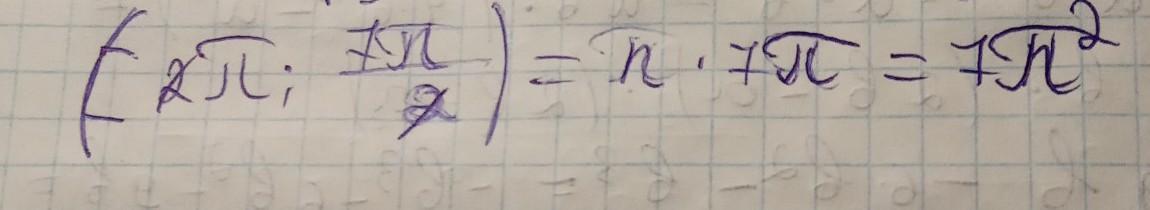 [2π; 7π/2) = π · 7π = 7π²